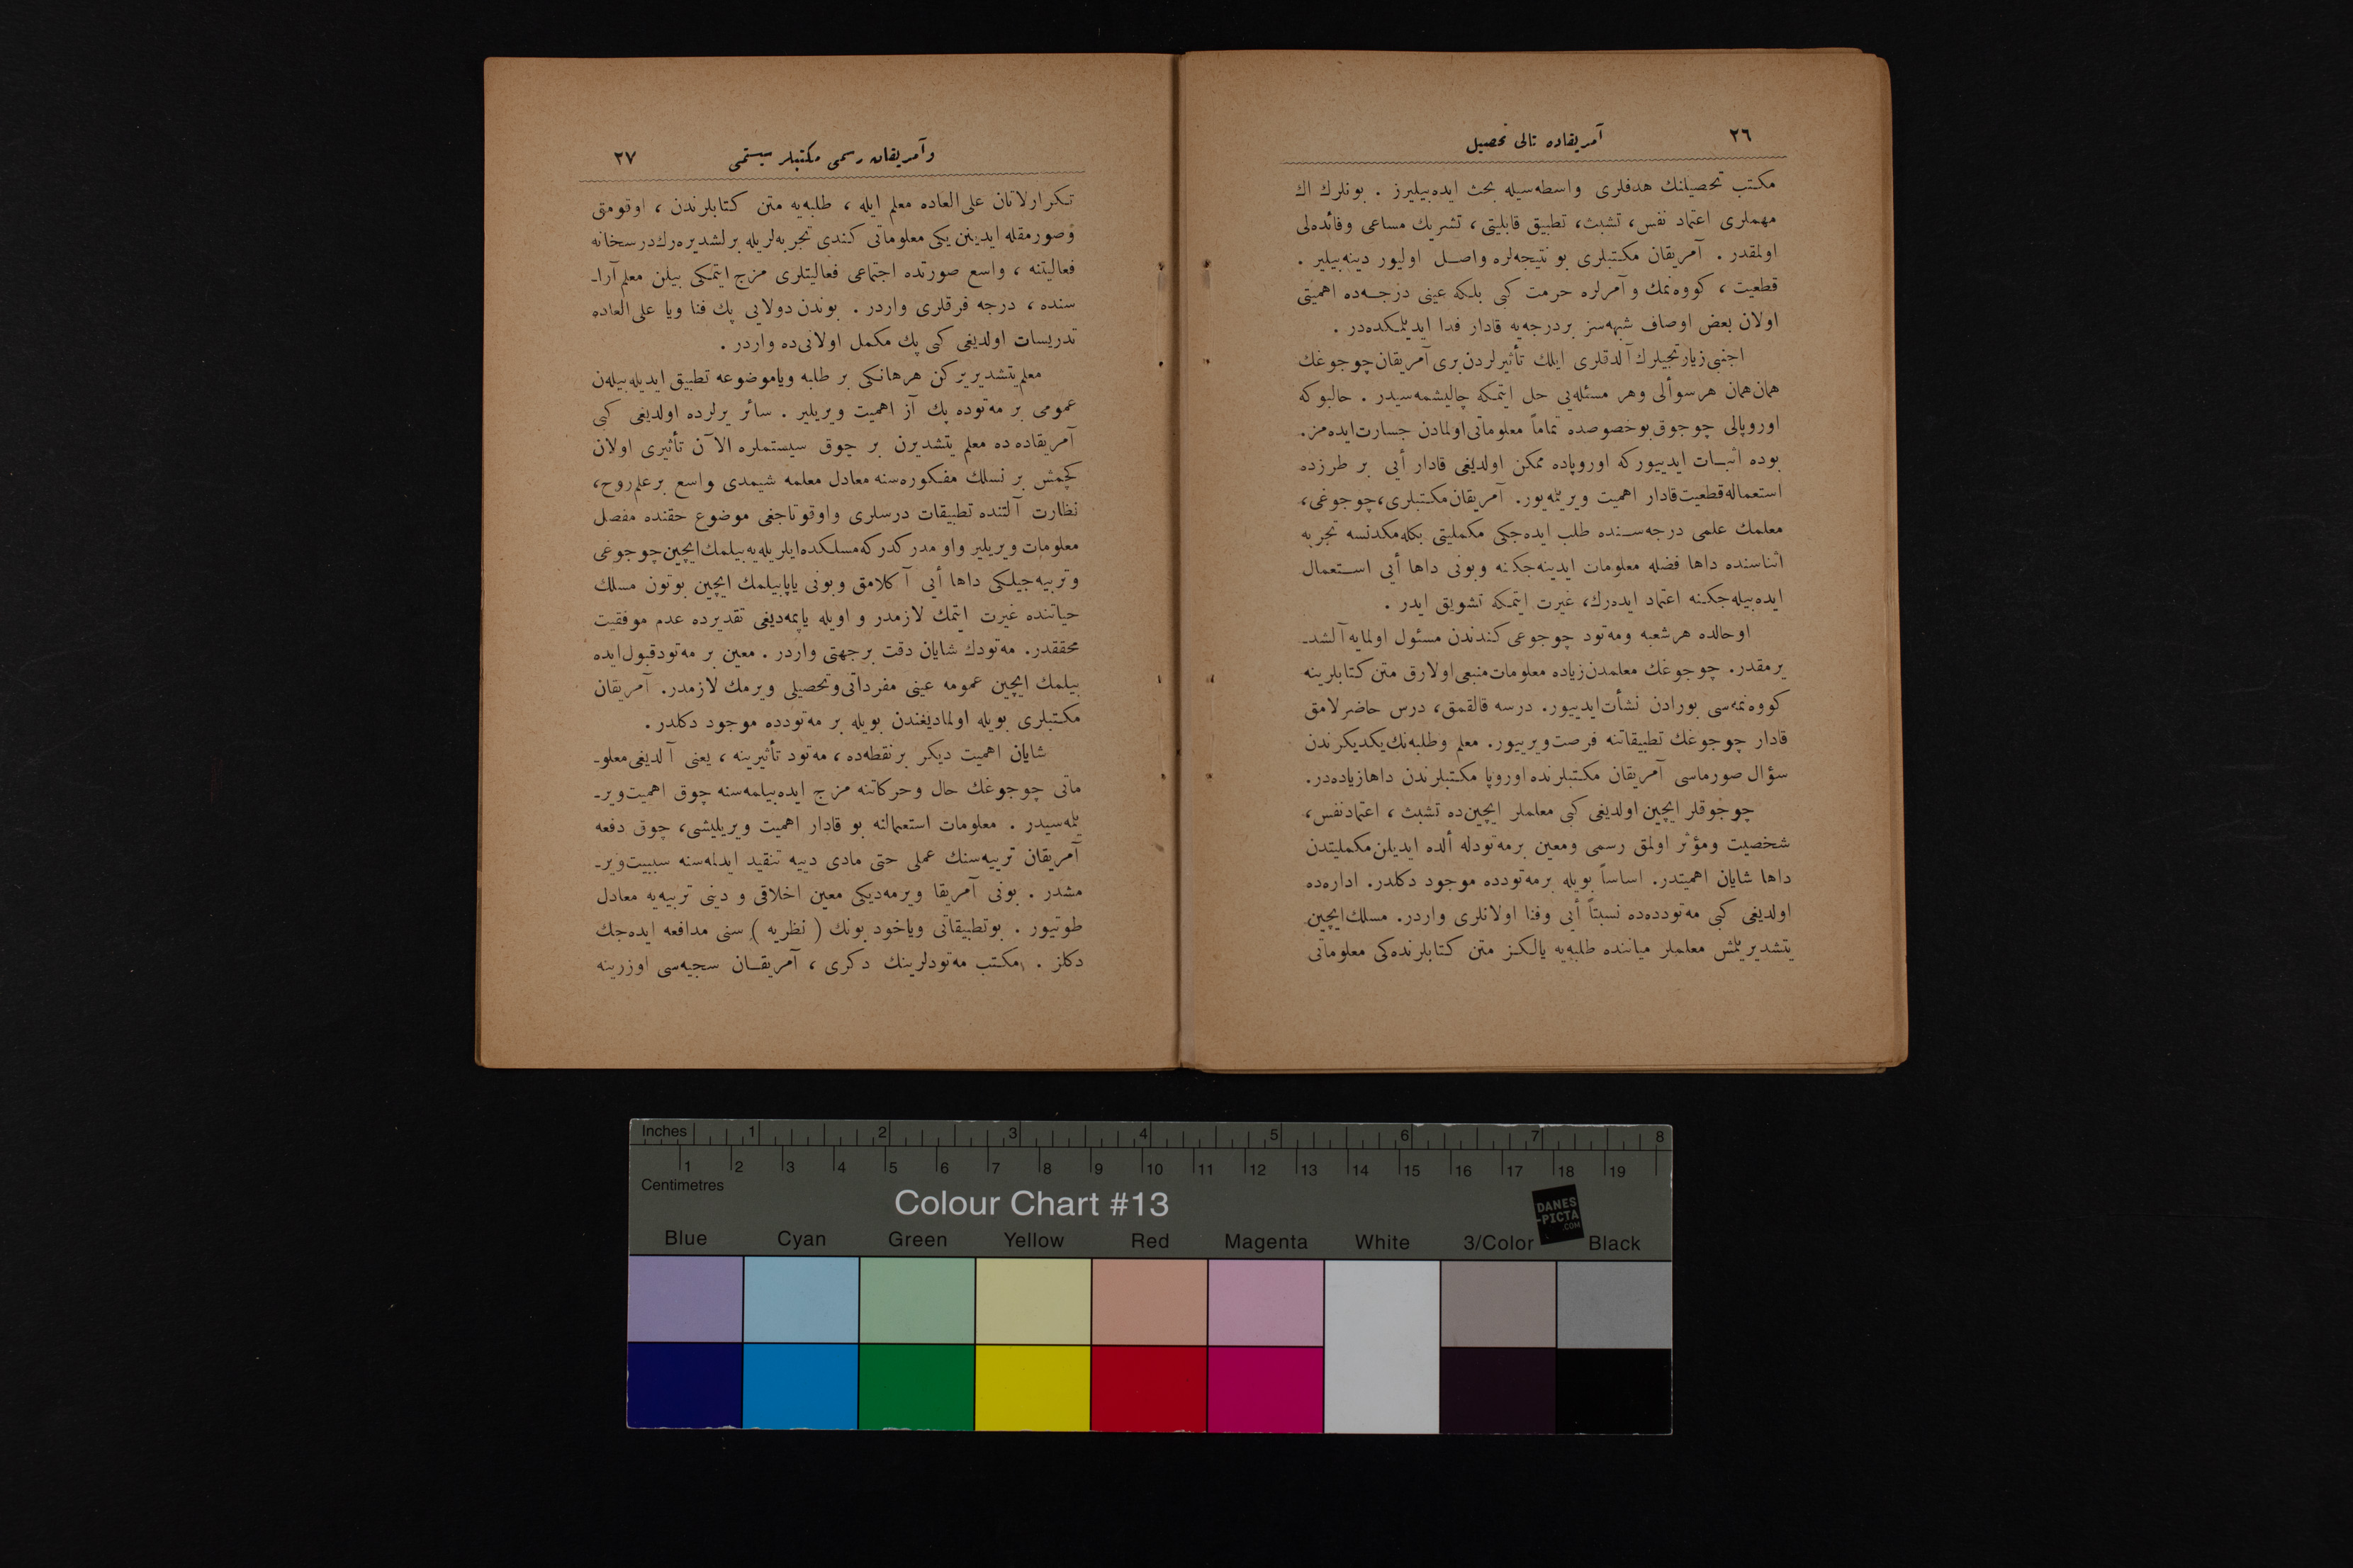 ٢٦
آمریقاده تالی تحصیل
مکتب تحصیلنك هدفلری واسطه‌سیله بحث ایده‌بیلیرز . بونلرك اك
مهملری اعتماد نفس، تشبث، تطبیق قابلیتی، تشریك مساعی وفائده‌لی
اولمقدر . آمریقان مکتبلری بو نتیجه‌لره واصل اولیور دینه‌بیلیر .
قطعیت ، کووه‌نمك و آمرلره حرمت کبی بلکه عینی درجه‌ده اهمیتی
اولان بعض اوصاف شبهه‌سز بردرجه‌یه قادار فدا ایدیلمکده‌در .
اجنبی زیارتجیلرك آلدقلری ایلك تأثیرلردن بری آمریقان چوجوغك
همان همان هر سوألی وهر مسئله‌یی حل ایتمکه چالیشمه‌سیدر . حالبوکه
اوروپالی چوجوق بوخصوصده تماماً معلوماتی اولمادن جسارت ایده‌مز.
بوده اثبات ایدییورکه اوروپاده ممکن اولدیغی قادار أیی بر طرزده
استعماله قطعیت قادار اهمیت ویریلمه‌یور. آمریقان مکتبلری، چوجوغی،
معلمك علمی درجه‌سنده طلب ایده‌جکی مکملیتی بکله‌مکدنسه تجربه
اثناسنده داها فضله معلومات ایدینه‌جکنه وبونی داها أیی استعمال
ایده‌بیله‌جکنه اعتماد ایده‌رك، غیرت ایتمکه تشویق ایدر .
اوحالده هر شعبه ومه‌تود چوجوغی کندندن مسئول اولمایه آلشد-
یرمقدر. چوجوغك معلمدن زیاده معلومات منبعی اولارق متن کتابلرینه
کووه‌نمه‌سی بورادن نشأت ایدییور. درسه قالقمق، درس حاضرلامق
قادار چوجوغك تطبیقاتنه فرصت ویرییور. معلم وطلبه‌نك یکدیکرندن
سؤال صورماسی آمریقان مکتبلرنده اوروپا مکتبلرندن داها زیاده‌در.
چوجوقلر ایچین اولدیغی کبی معلملر ایچین‌ده تشبث ، اعتماد نفس،
شخصیت ومؤثر اولمق رسمی ومعین برمه‌تودله ألده ایدیلن مکملیتدن
داها شایان اهمیتدر. اساساً بویله برمه‌تودده موجود دکلدر. اداره‌ده
اولدیغی کبی مه‌تودده‌ده نسبتاً أیی وفنا اولانلری واردر. مسلك ایچین
یتشدیریلمش معلملر میاننده طلبه‌یه یالکز متن کتابلرنده‌کی معلوماتی
وآمریقان رسمی مکتبلر سیستمی
٢٧
تکرارلاتان علی‌العاده معلم ایله ، طلبه‌یه متن کتابلرندن ، اوقومق
وصورمقله ایدینن یکی معلوماتی کندی تجربه‌لریله برلشدیره‌رك درسخانه
فعالیتنه ، واسع صورتده اجتماعی فعالیتلری مزج ایتمکی بیلن معلم آرا-
سنده ، درجه فرقلری واردر . بوندن دولایی پك فنا ویا علی‌العاده
تدریسات اولدیغی کبی پك مکمل اولانی‌ده واردر .
معلم یتشدیریرکن هرهانکی بر طلبه ویاموضوعه تطبیق ایدیله‌بیله‌ن
عمومی بر مه‌توده پك آز اهمیت ویریلیر . سائر یرلرده اولدیغی کبی
آمریقاده ده معلم یتشدیرن بر چوق سیستملره الآن تأثیری اولان
کچمش بر نسلك مفکوره‌سنه معادل معلمه شیمدی واسع بر علم روح،
نظارت آلتنده تطبیقات درسلری واوقوتاجغی موضوع حقنده مفصل
معلومات ویریلیر واو مدرکدرکه مسلکده ایلریله‌یه‌بیلمك ایچین چوجوغی
وتربیه‌جیلکی داها أیی آکلامق وبونی یاپابیلمك ایچین بوتون مسلك
حیاتنده غیرت ایتمك لازمدر و اویله یاپمه‌دیغی تقدیرده عدم موفقیت
محققدر. مه‌تودك شایان دقت بر جهتی واردر . معین بر مه‌تود قبول ایده
بیلمك ایچین عمومه عینی مفرداتی وتحصیلی ویرمك لازمدر. آمریقان
مکتبلری بویله اولمادیغندن بویله بر مه‌تودده موجود دکلدر .
شایان اهمیت دیکر بر نقطه‌ده ، مه‌تود تأثیرینه ، یعنی آلدیغی معلو-
ماتی چوجوغك حال وحرکاتنه مزج ایده‌بیلمه‌سنه چوق اهمیت ویر-
یلمه‌سیدر . معلومات استعمالنه بو قادار اهمیت ویریلیشی، چوق دفعه
آمریقان تربیه‌سنك عملی حتی مادی دییه تنقید ایدلمه‌سنه سببیت ویر-
مشدر . بونی آمریقا ویرمه‌دیکی معین اخلاقی و دینی تربیه‌یه معادل
طوتیور . بوتطبیقاتی ویاخود بونك ( نظریه ) سنی مدافعه ایده‌جك
دکلز . مکتب مه‌تودلرینك دکری ، آمریقان سجیه‌سی اوزرینه
Inches 1 2 3 4 5 6 7 8
1 2 3 4 5 6 7 8 9 10 11 12 13 14 15 16 17 18 19
Centimetres
Colour Chart #13
DANES
-PICTA
.COM
Blue Cyan Green Yellow Red Magenta White 3/Color Black